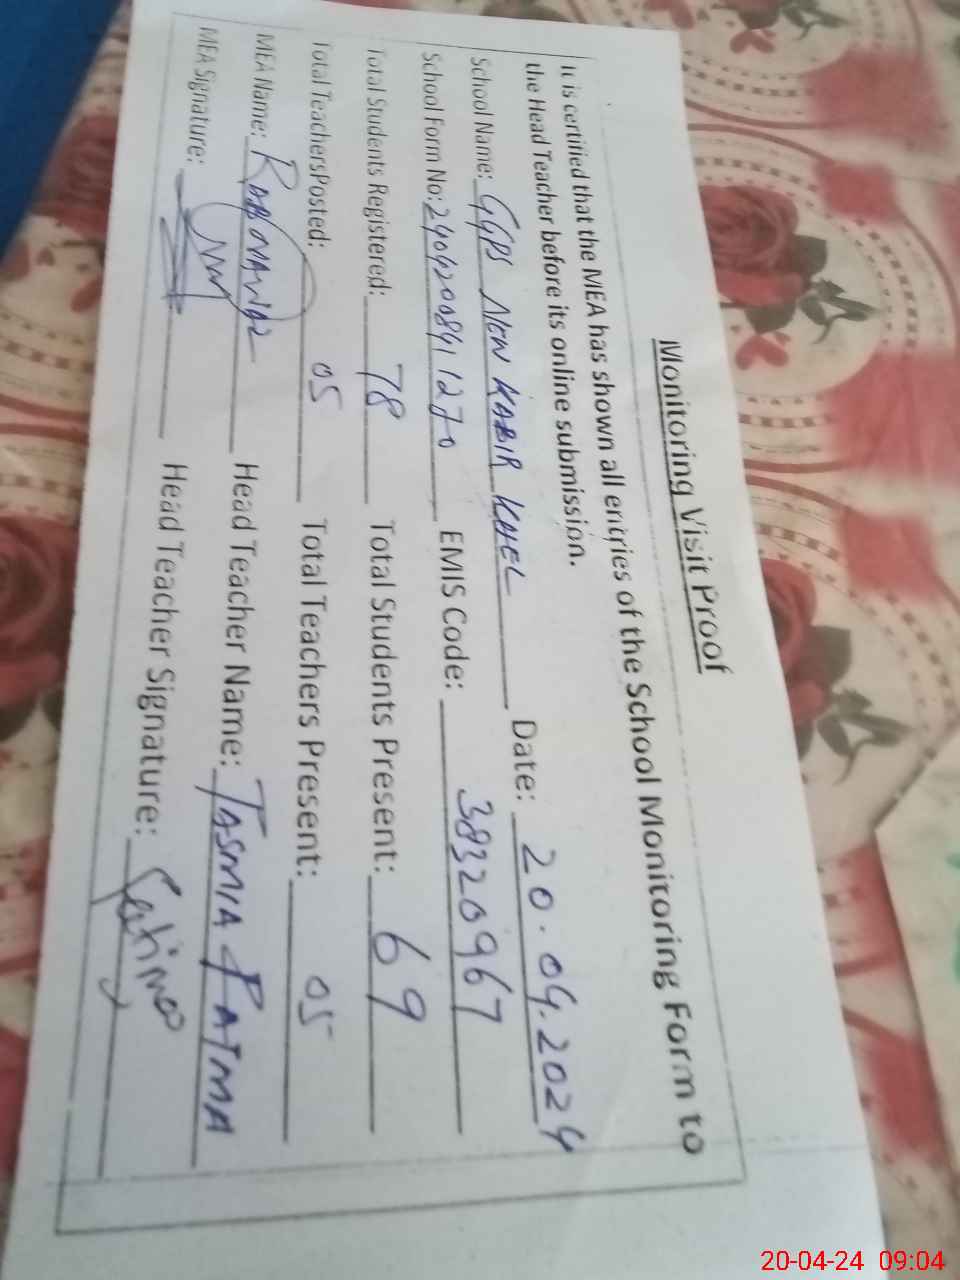 Monitoring Visit Proof
It is certified that the MEA has shown all entries of the School Monitoring Form to
the Head Teacher before its online submission.
School Name: GGPS NEW KABIR KHEL Date: 20.04.2024
School Form No: 24042008411270 EMIS Code: 38320967
Total Students Registered: 78 Total Students Present: 69
Total TeachersPosted: 05 Total Teachers Present: 05
MEA Name: Head Teacher Name: TASMIA FATMA
MEA Signature: Head Teacher Signature:
20-04-24 09:04